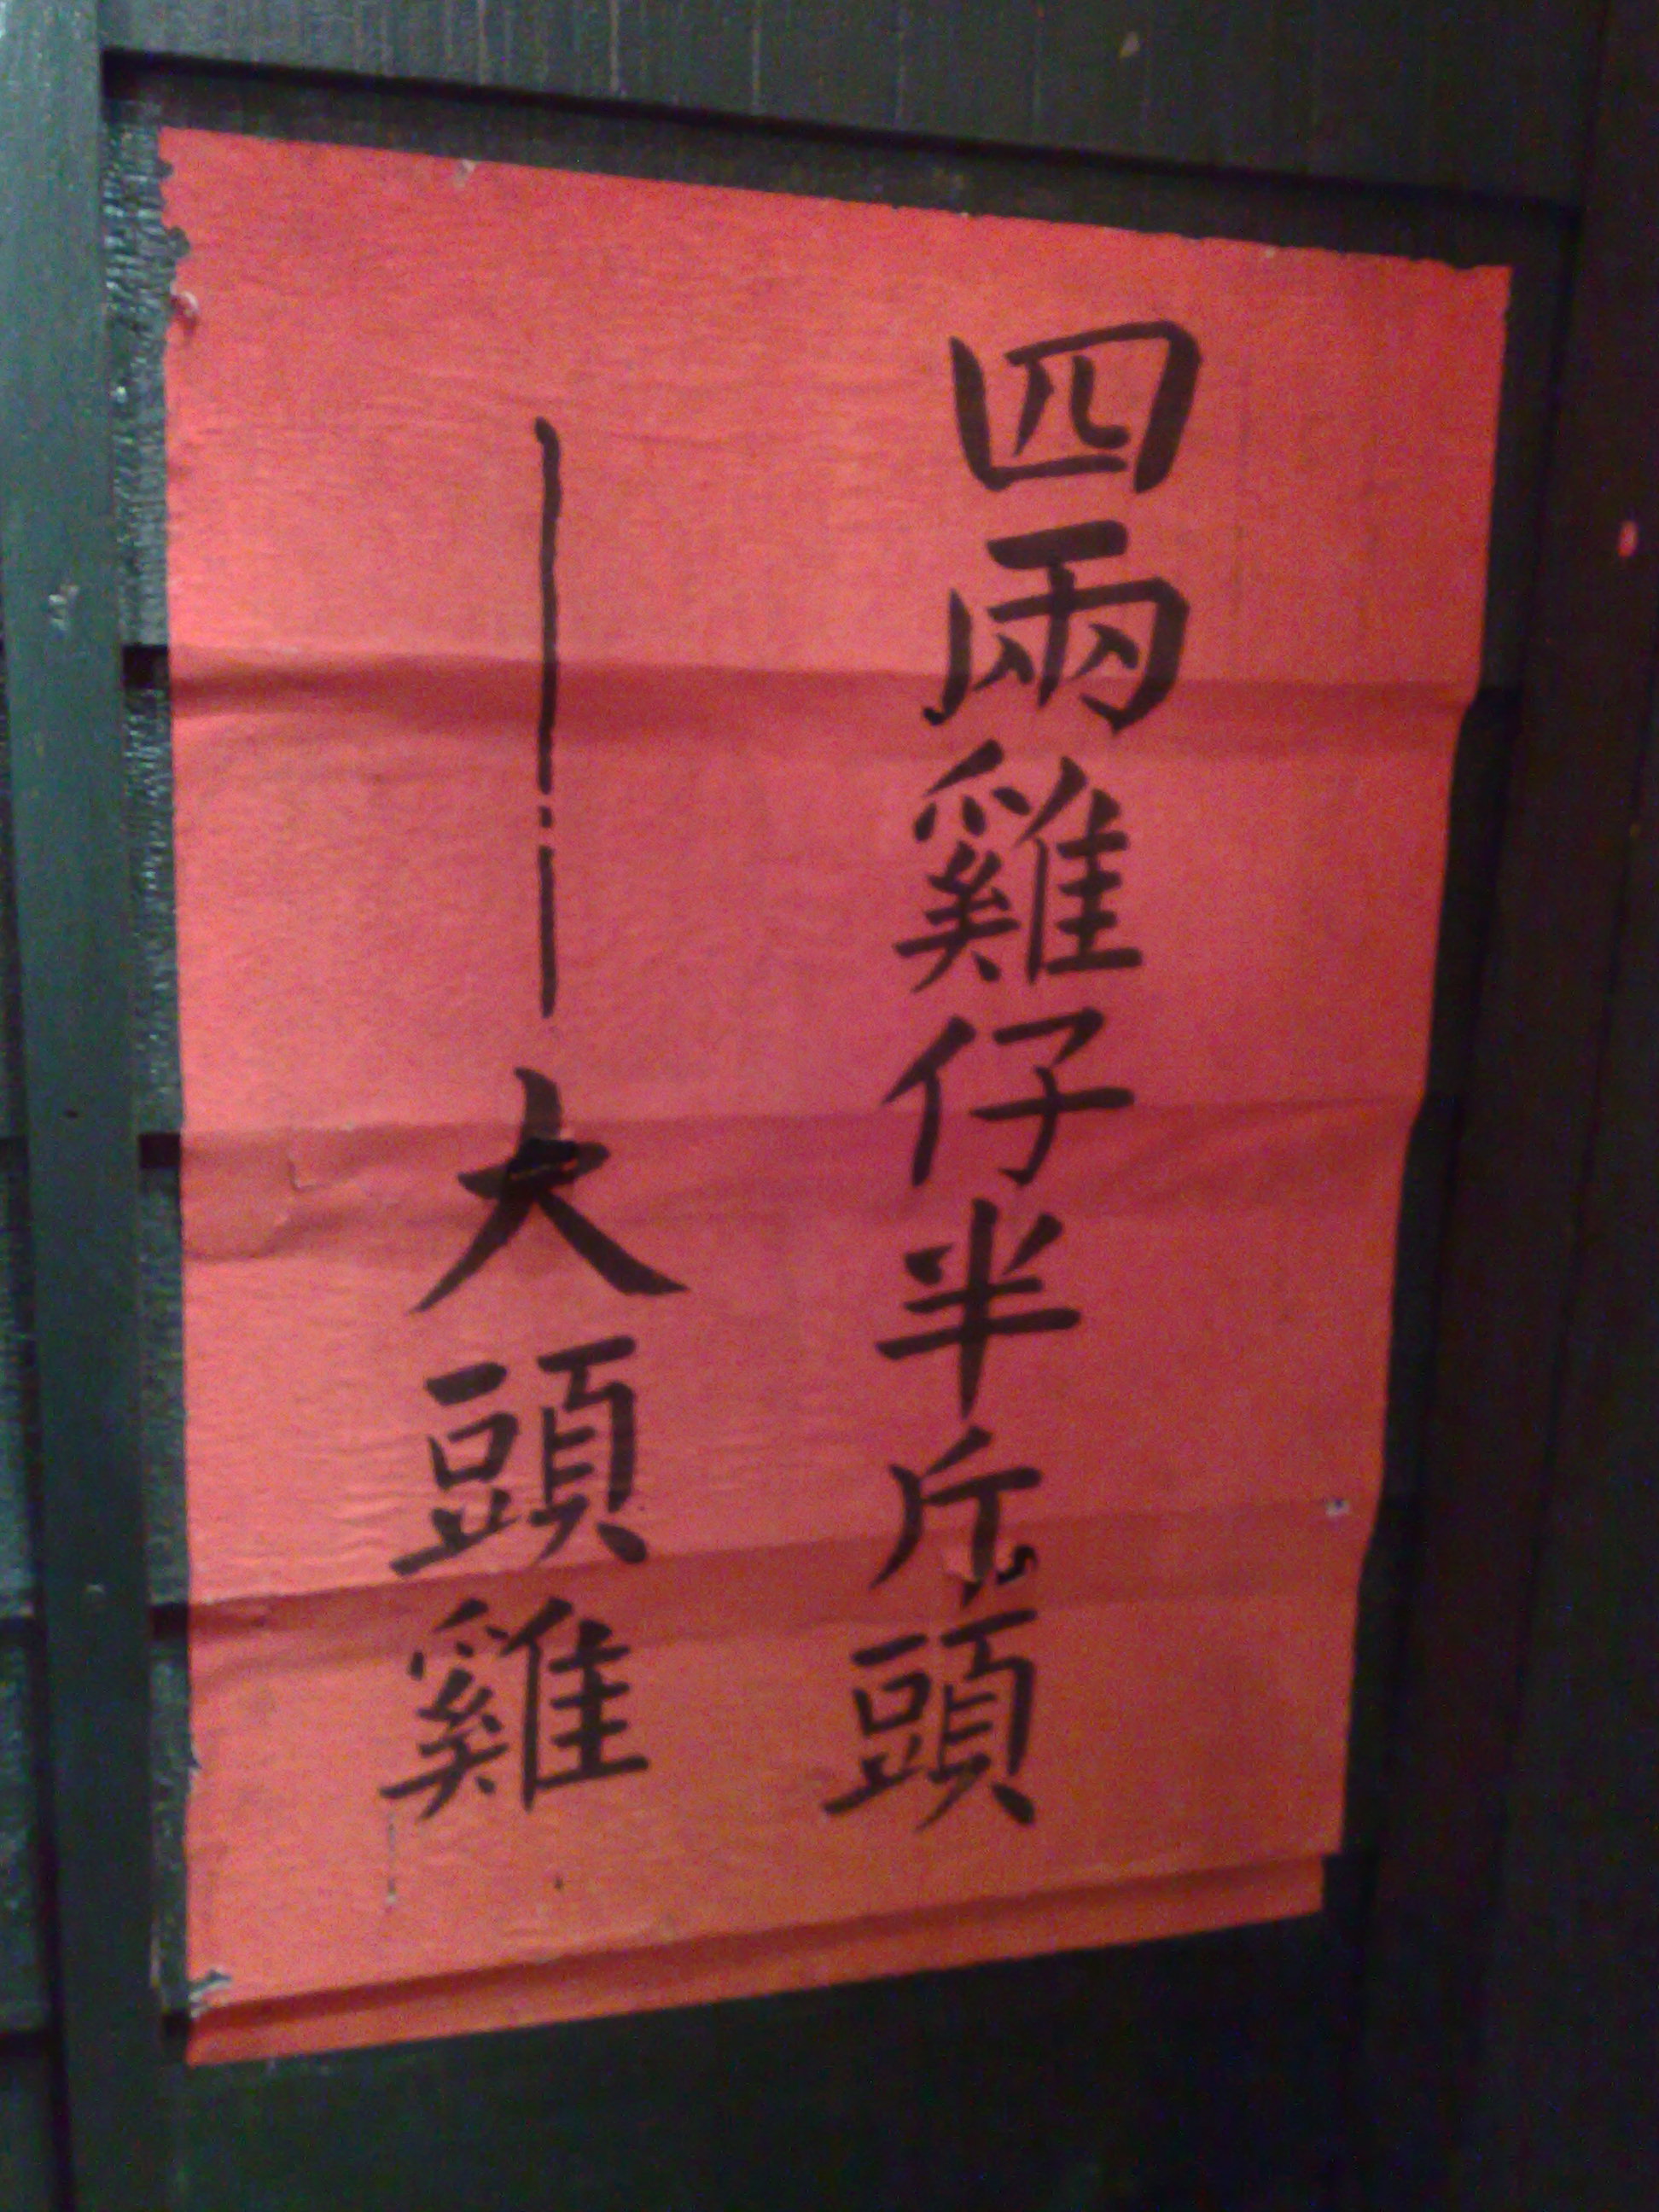 四兩雞仔半斤頭
——大頭雞